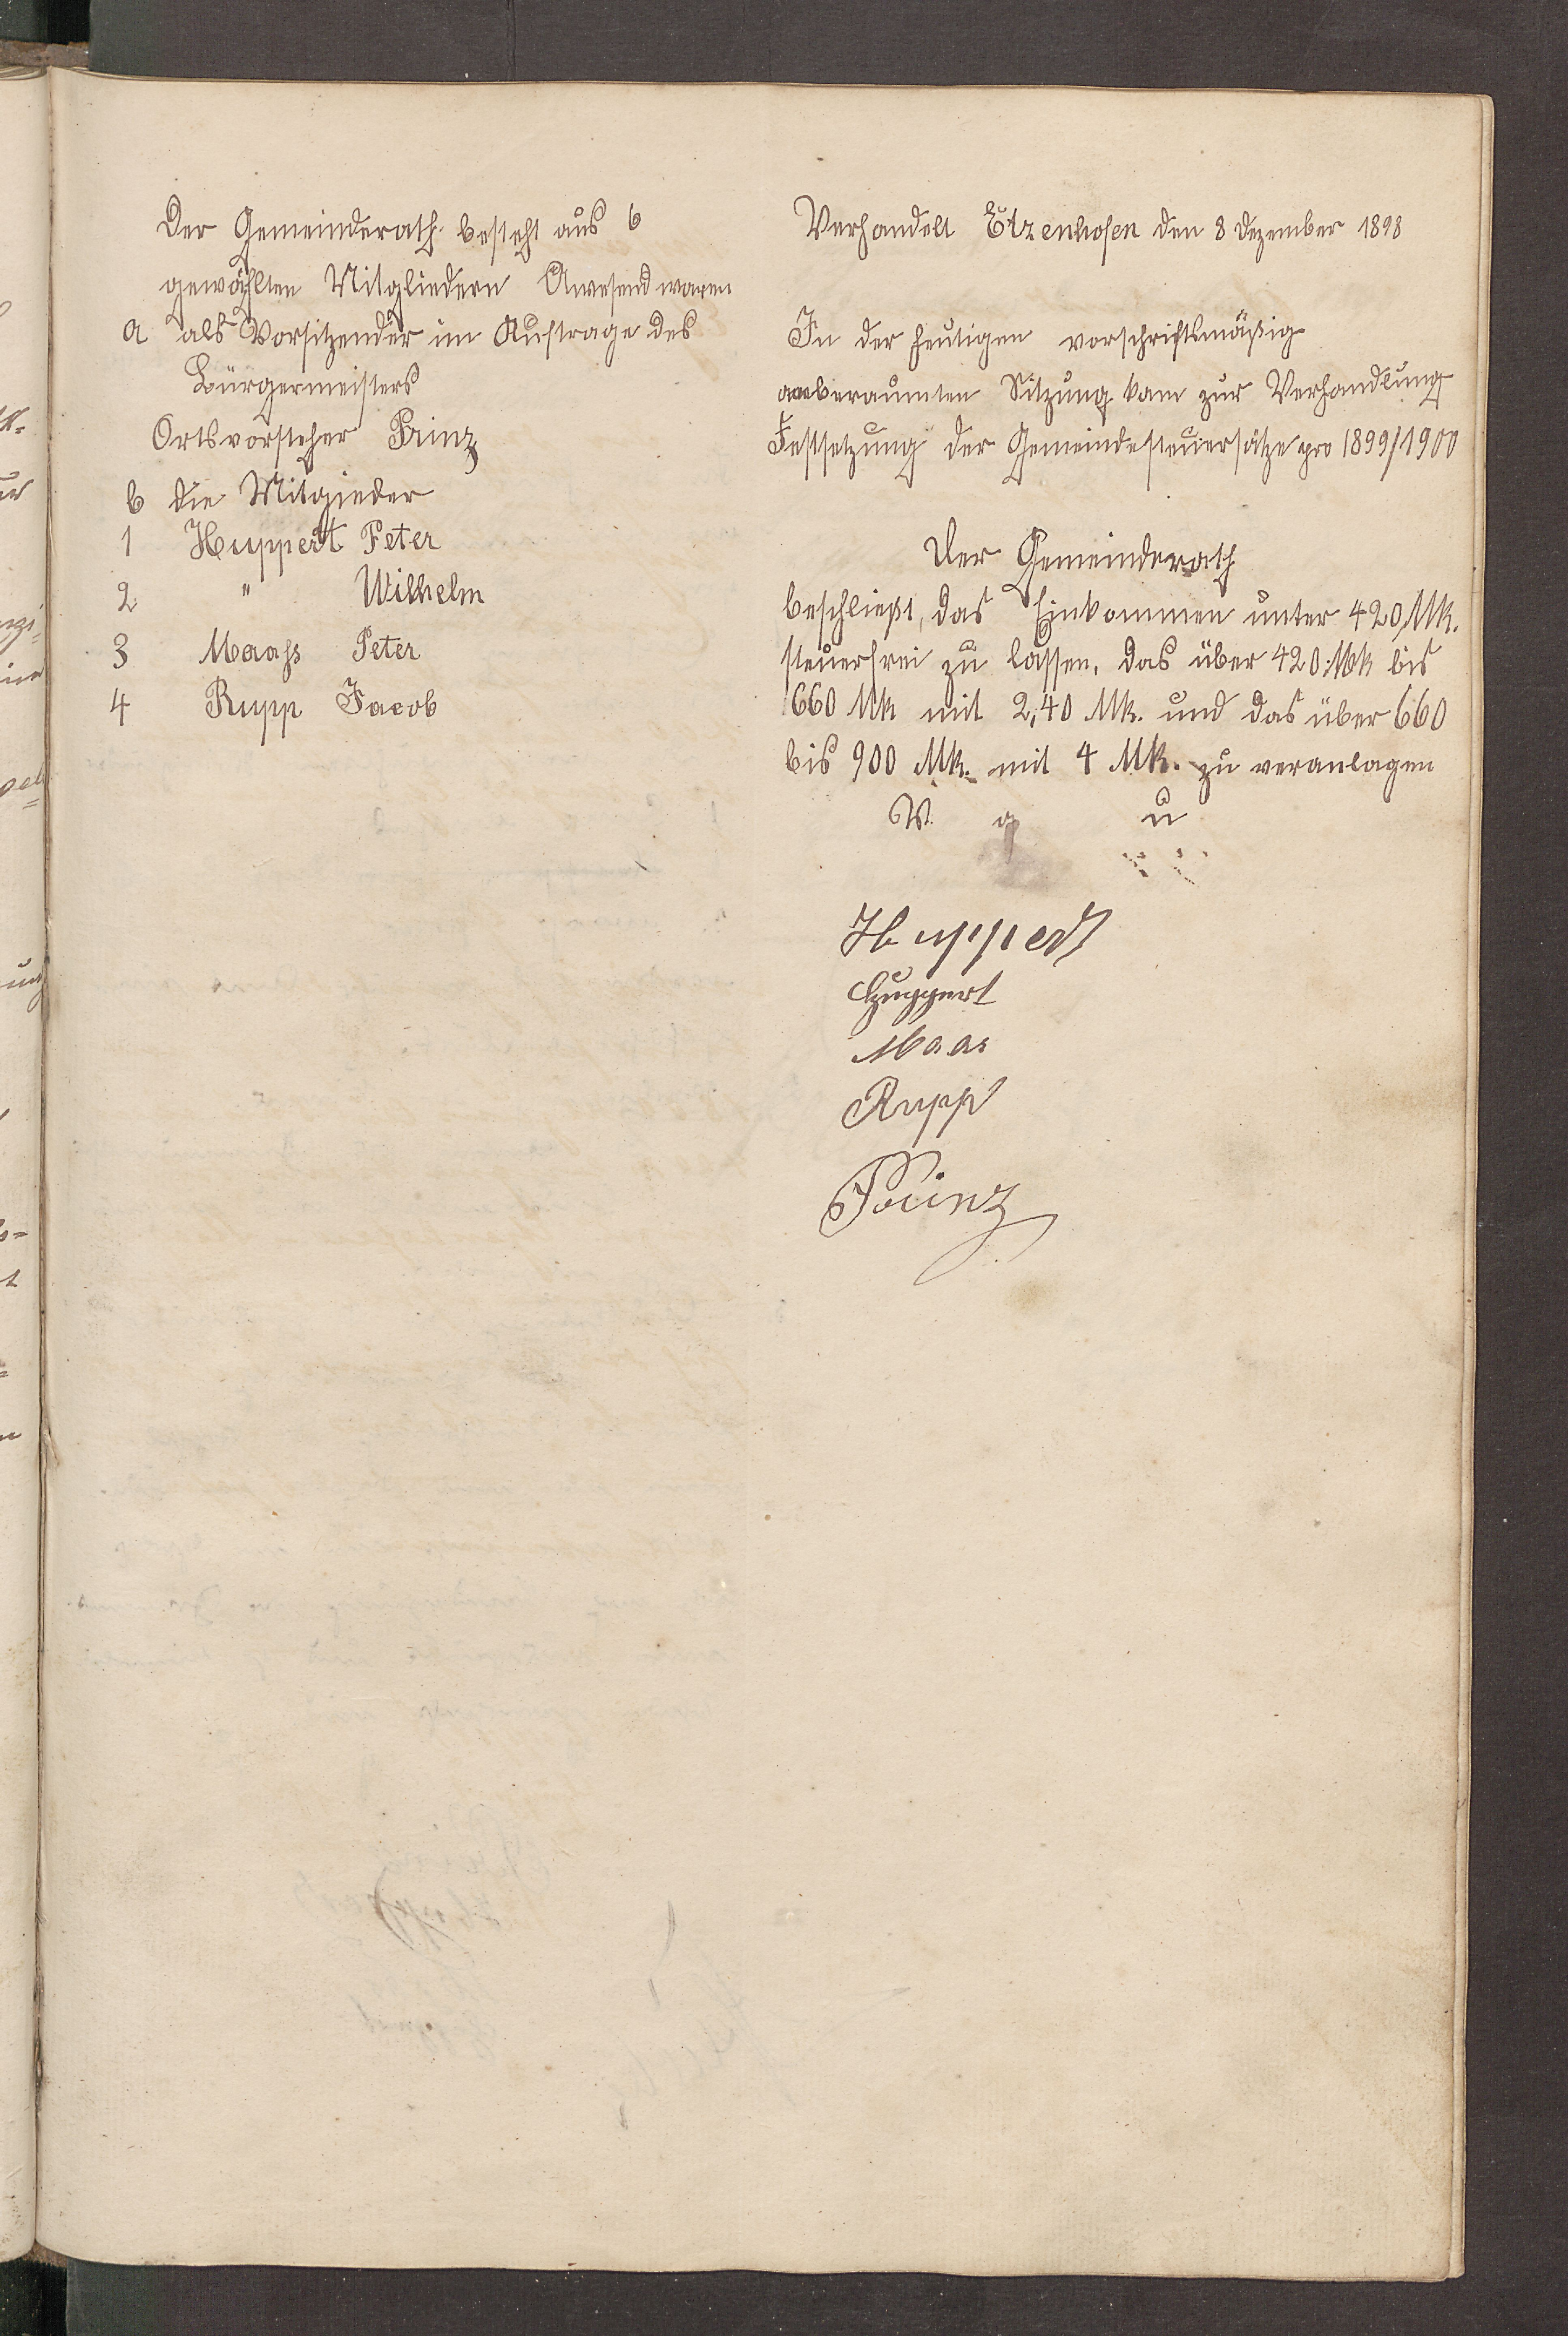 Der Gemeinderath besteht aus 6
gewählten Mitgliedern Anwesend waren
a als Vorsitzender im Auftrage des
Bürgermeisters
Ortsvorsteher Prinz
b die Mitgieder
1 Huppert Peter
2 " Wilhelm
3 Maahs Peter
4 Rupp Jacob
Verhandelt Etzenhofen den 8 Dezember 1898
In der heutigen vorschriftsmäßig
anberaumten Sitzung kam zur Verhandlung
Festsetzung der Gemeindesteuersätze pro 1899/1900
Der Gemeinderath
beschließt, das Einkommen unter 420 Mk.
steuerfrei zu lassen, das über 420 Mk bis
660 Mk mit 2,40 Mk. und das über 660
bis 900 Mk. mit 4 Mk. zu veranlagen
V. g u
Huppert
Huppert
Maas
Rupp
Prinz